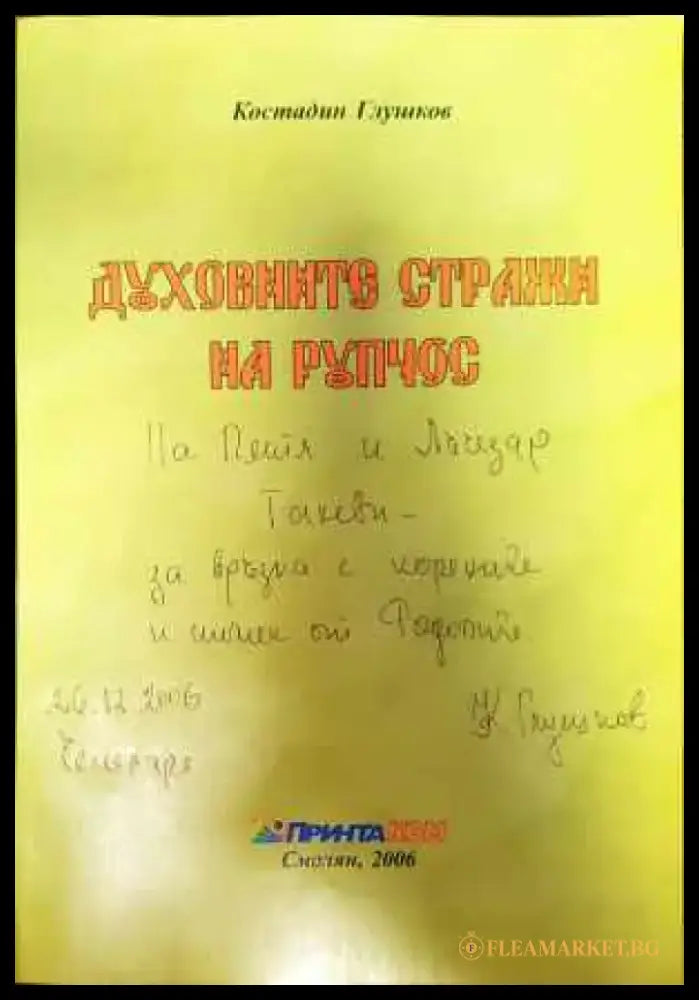 Костадин Глушков
ДУХОВНИТЕ СТРАЖИ
НА РУПЧОС
На Петя и
Такеви -
за връзка с корените
и от Родопите.
26.12.2006 К. Глушков
Чепеларе
ПРИНТА КОМ
Смолян, 2006
FLEAMARKET.BG